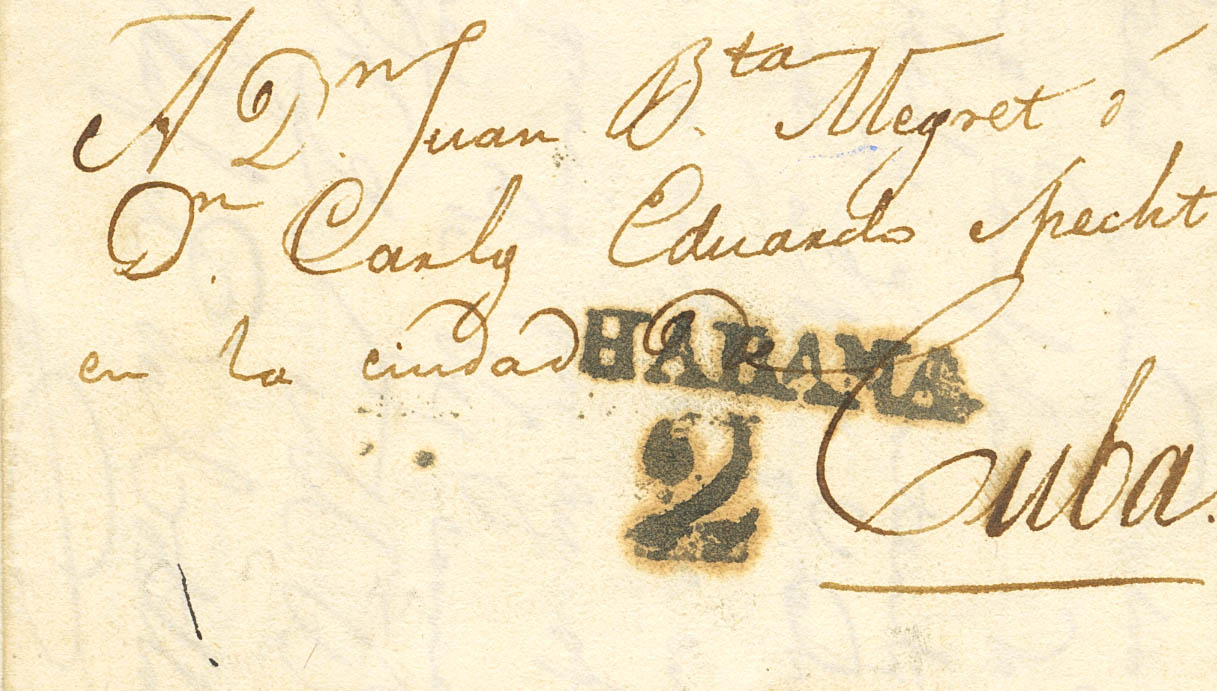 A Dn. Juan Bta. Megret ó
Dn. Carlos Eduardo Specht
en la ciudad de
HABANA
2
Cuba.